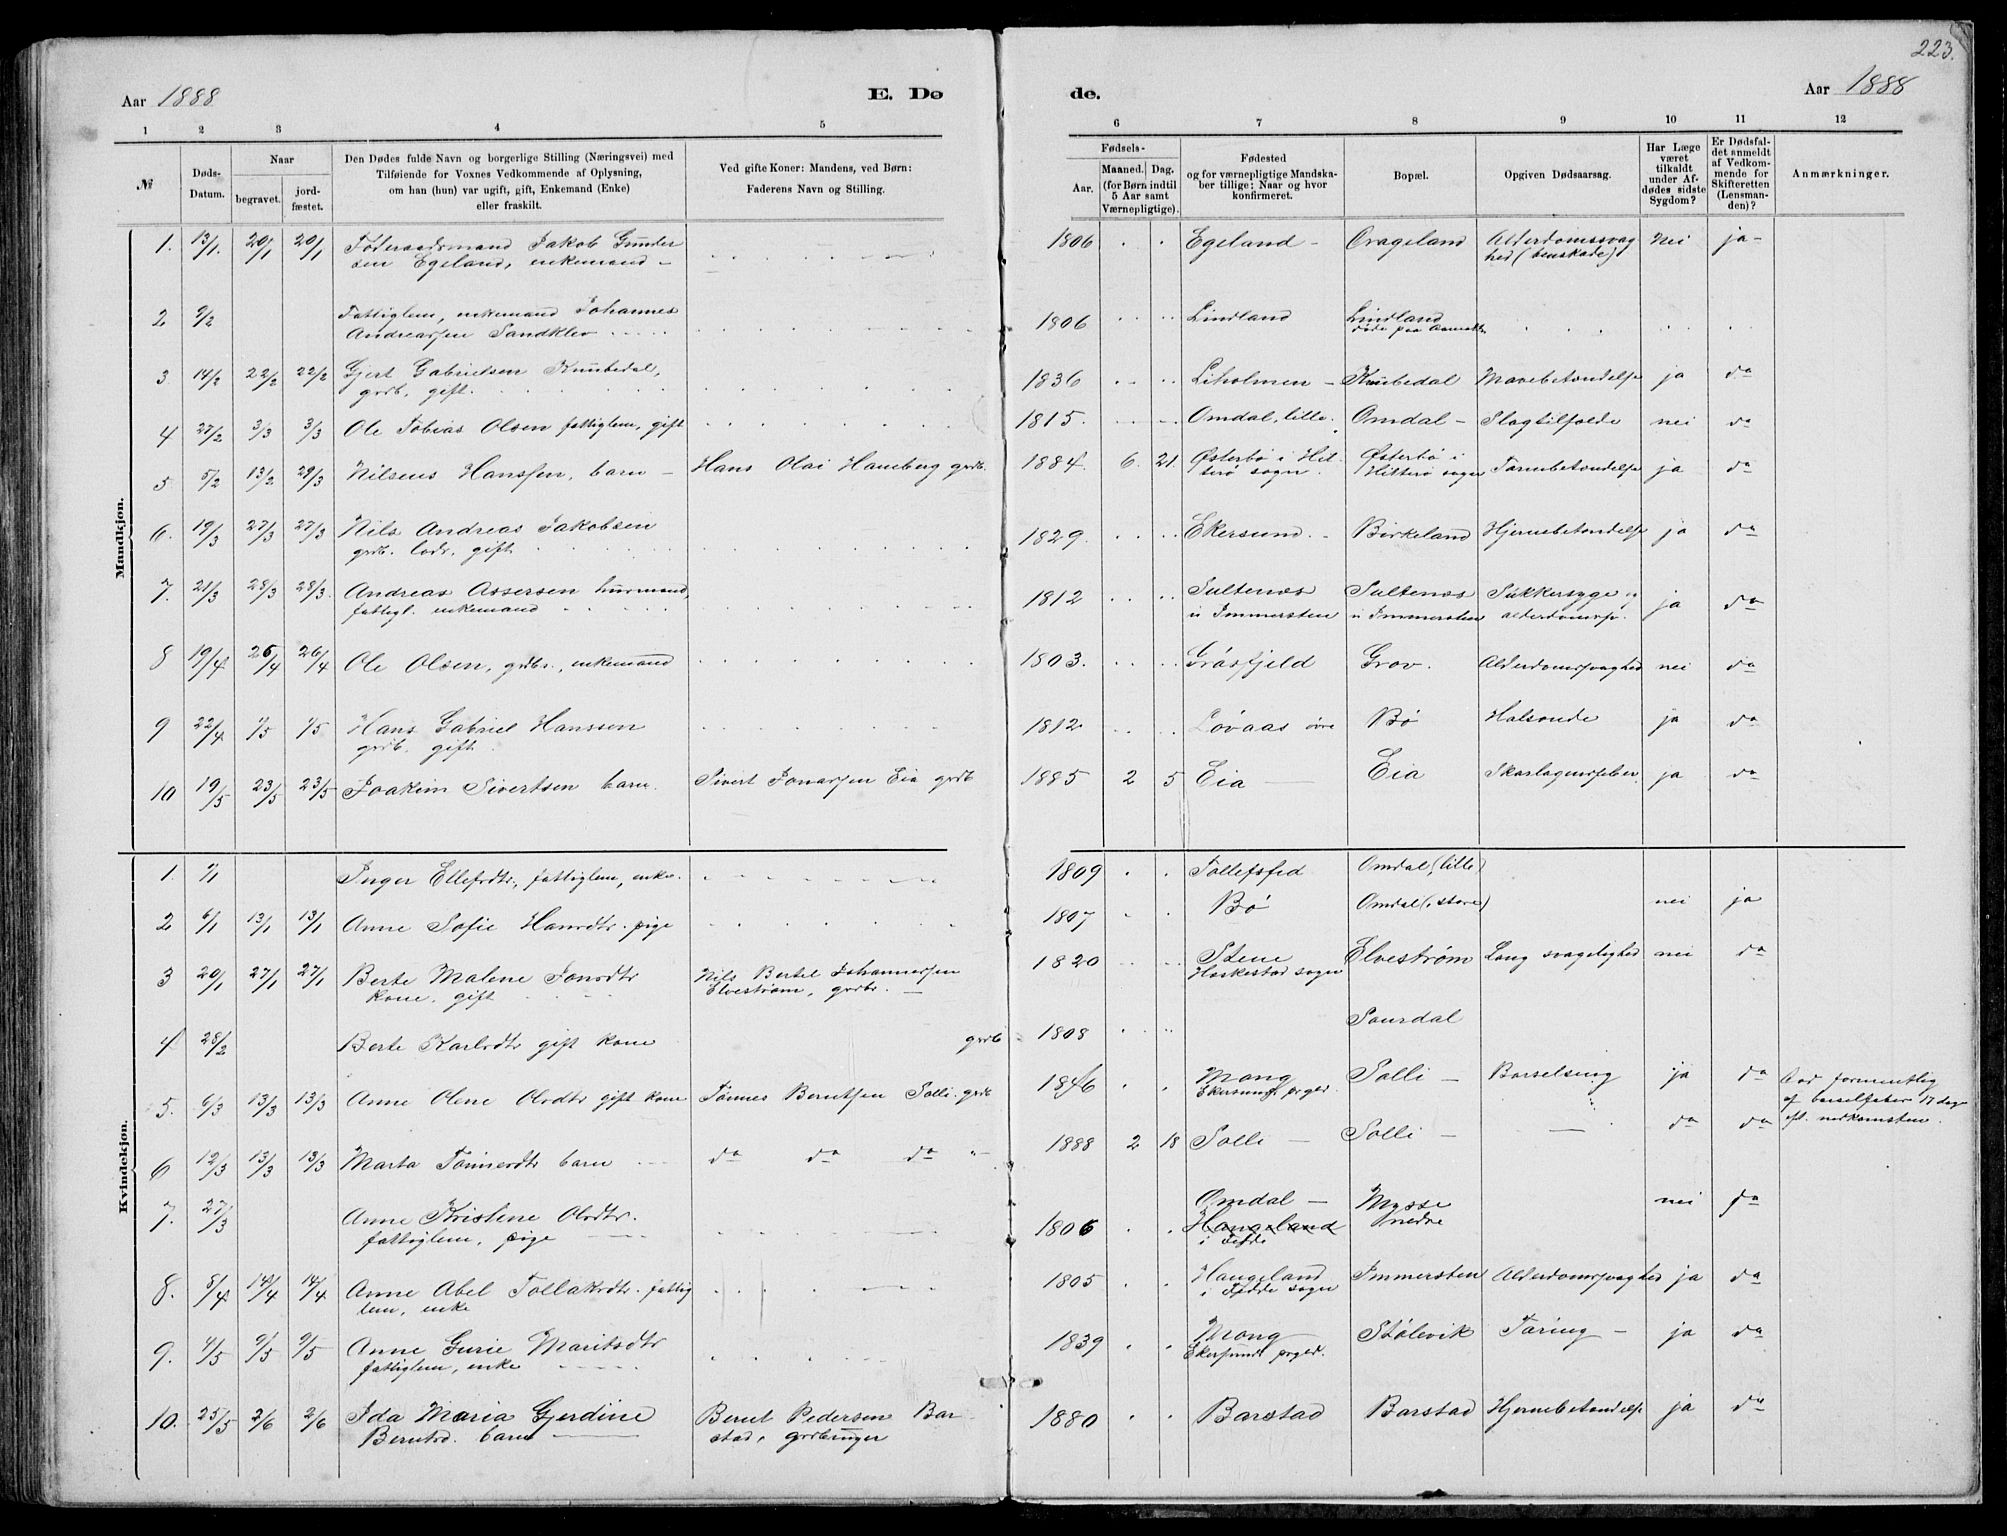 223.
Aar 1888 E. Dø de. Aar 1888
1 2 3 4 5 6 7 8 9 10 11 12
№
Døds-
Datum.
Naar
begravet.
jord-
fæstet.
Den Dødes fulde Navn og borgerlige Stilling (Næringsvei) med
Tilføiende for Voxnes Vedkommende af Oplysning,
om han (hun) var ugift, gift, Enkemand (Enke)
eller fraskilt.
Ved gifte Koner: Mandens, ved Børn:
Faderens Navn og Stilling.
Fødsels-
Aar.
Maaned. Dag.
(for Børn indtil
5 Aar samt
Værnepligtige).
Fødested
og for værnepligtige Mandska-
ber tillige: Naar og hvor
konfirmeret.
Bopæl.
Opgiven Dødsaarsag.
Har Læge
været
tilkaldt
under Af-
dødes sidste
Sygdom?
Er Dødsfal-
det anmeldt
af Vedkom-
mende for
Skifteretten
(Lensman-
den)?
Anmærkninger.
Mandkjøn.
1. 13/1. 20/1 20/1 Føderaadsmand Jakob Gunder 1806 Egeland - Orageland Alderdomssvag nei ja -
sen Egeland, enkemand - hed (benskade)
2 9/2 Fattiglem, enkemand Johannes 1806 Lindland Lindland
Andreassen Sandklev døde paa
3 14/2 22/2 22/2 Gjert Gabrielsen Knubedal, 1836 Liholmen - Knubedal Mavebetændelse ja do
grdb. gift.
4 27/2 3/3 3/3 Ole Tobias Olsen fattiglem, gift 1815. Omdal, lille. Omdal - Slagtilfælde nei do
5 5/2 13/2 29/3 Nilsens Hanssen, barn - Hans Olai Haneberg grdb. 1884. 6. 21. Østerbø i Hit- Østerbø i Tarmbetændelse ja do
terø sogn. Hitterø sogn
6. 19/3 27/3 27/3 Nils Andreas Jakobsen 1829. Ekersund. - Birkeland Hjernebetændelse ja do
grdb. lods, gift
7. 21/3 28/3 28/3. Andreas Assersen husmand, 1812 Sultenæs Sultenæs Sukkersyge og ja do
fattigl. enkemand u Immersten u Immersten alderdomssv.
8 19/4 26/4 26/4 Ole Olsen, grdbr., enkemand 1803. Gråsfjeld Grov. Alderdomssvaghed nei do
9 22/4 1/5 1/5 Hans Gabriel Hanssen 1812 Løvaas øvre Bø Halsonde ja do
grdb. gift
10 19/5 23/5 23/5 Joakim Sivertsen barn. Sivert Jonassen Eia grdb 1885 2 5 Eia Eia Skarlagensfeber ja do
Kvindekjøn.
1. 2/1 Inger Ellefsdtr., fattiglem, enke. 1809 Tollefsfed Omdal, (lille)
2 6/1 13/1 13/1 Anne Sofie Hansdtr. pige 1807 Bø Omdal (, store) nei ja
3 20/1 27/1 27/1 Berte Malene Jonsdtr Nils Bertel Johannessen 1820 Stene Elvestrøm Lang svagelighed nei do
kone, gift Elvestrøm, grdbr. Heskestad sogn
4 28/2 Berte Karlsdtr gift kone grdb 1808 Saurdal
5. 6/3 13/3 13/3 Anne Olene Olsdtr gift kone Tønnes Berntsen Solli. grdb 1846 Mong Solli - Barselseng ja do Død formentlig
Ekersund prgjd. af barselfeber 17 dage
eft. nedkomsten.
6 12/3 13/3 13/3 Marta Tønnesdtr barn do do do 1888 2 18 Solli - Solli - do do
7. 27/3 Anne Kristine Olsdtr. 1806 Omdal - Mysse nei do
fattiglem, pige Haugeland nedre
i Fedde
8. 8/4 14/4 14/4 Anne Abel Tollaksdtr. fattig 1805 Haugeland Immersten Alderdomssvaghed ja do
lem, enke i Fedde sogn
9. 4/5 9/5 9/5 Anne Gurie Maritsdtr 1839 Mong Stølevik Tæring - ja do
fattiglem, enke Ekersund prgjd.
10. 25/5 2/6 2/6 Ida Maria Gjerdine Bernt Pedersen Bar 1880 Barstad Barstad Hjernebetændelse ja do
Berntsd. barn stad, grdbruger